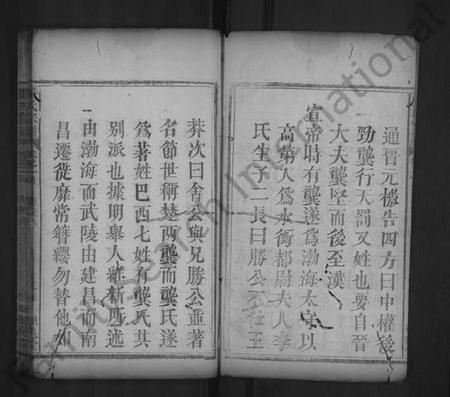 通晋元檄告四方曰中權後
勁龔行天罰又姓也要自晉
大夫龔堅而後至漢
宣帝時有龔遂為渤海太守以
高第入為水衡都尉夫人李
氏生子二長曰勝公不仕王
莽次曰舍公與兄勝公並著
名節世稱楚兩龔而龔氏遂
為著姓巴西七姓有龔氏其
別派也據明舉人維新所述
一由渤海而武陵由建昌而南
昌遷徙靡常簪纓勿替他如
FamilySearch International